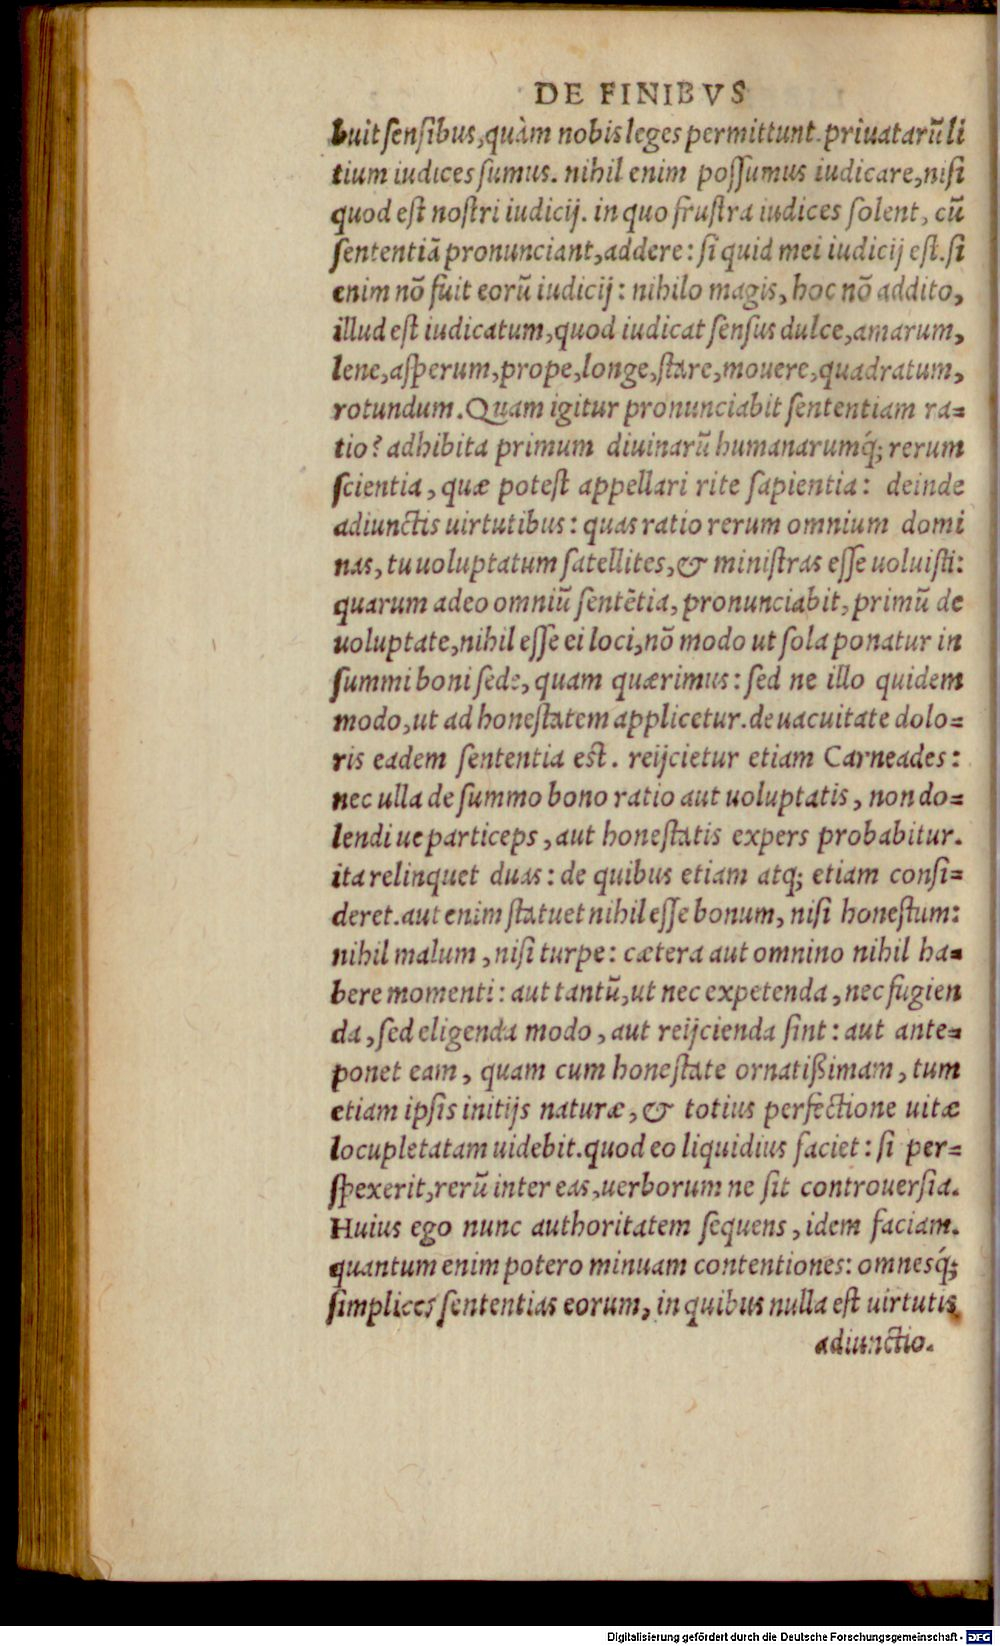 DE FINIBVS
buit sensibus, quàm nobis leges permittunt. priuatarũ li
tium iudices sumus. nihil enim possumus iudicare, nisi
quod est nostri iudicij. in quo frustra iudices solent, cũ
sententiã pronunciant, addere: si quid mei iudicij est. si
enim nõ fuit eorũ iudicij: nihilo magis, hoc nõ addito,
illud est iudicatum, quod iudicat sensus dulce, amarum,
lene, asperum, prope, longe, stare, mouere, quadratum,
rotundum. Quam igitur pronunciabit sententiam ra=
tio? adhibita primum diuinarũ humanarumq́; rerum
scientia, quæ potest appellari rite sapientia: deinde
adiunctis uirtutibus: quas ratio rerum omnium domi
nas, tu uoluptatum satellites, & ministras esse uoluisti:
quarum adeo omniũ sentẽtia, pronunciabit, primũ de
uoluptate, nihil esse ei loci, nõ modo ut sola ponatur in
summi boni sede, quam quærimus: sed ne illo quidem
modo, ut ad honestatem applicetur. de uacuitate dolo=
ris eadem sententia est. reijcietur etiam Carneades:
nec ulla de summo bono ratio aut uoluptatis, non do=
lendi ue particeps, aut honestatis expers probabitur.
ita relinquet duas: de quibus etiam atq; etiam consi=
deret. aut enim statuet nihil esse bonum, nisi honestum:
nihil malum, nisi turpe: cætera aut omnino nihil ha=
bere momenti: aut tantũ, ut nec expetenda, nec fugien
da, sed eligenda modo, aut reijcienda sint: aut ante=
ponet eam, quam cum honestate ornatißimam, tum
etiam ipsis initijs naturæ, & totius perfectione uitæ
locupletatam uidebit. quod eo liquidius faciet: si per=
spexerit, rerũ inter eas, uerborum ne sit controuersia.
Huius ego nunc authoritatem sequens, idem faciam.
quantum enim potero minuam contentiones: omnesq́;
simplices sententias eorum, in quibus nulla est uirtutis
adiunctio.
Digitalisierung gefördert durch die Deutsche Forschungsgemeinschaft - DFG